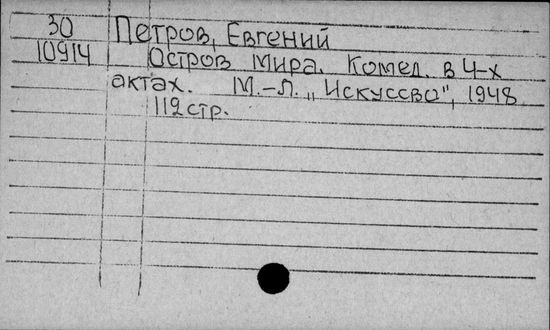 30 Петров, Евгений
10914 Остров мира. Комед. в 4-х
актах. М.-Л. „Искуссво", 1948
112 стр.